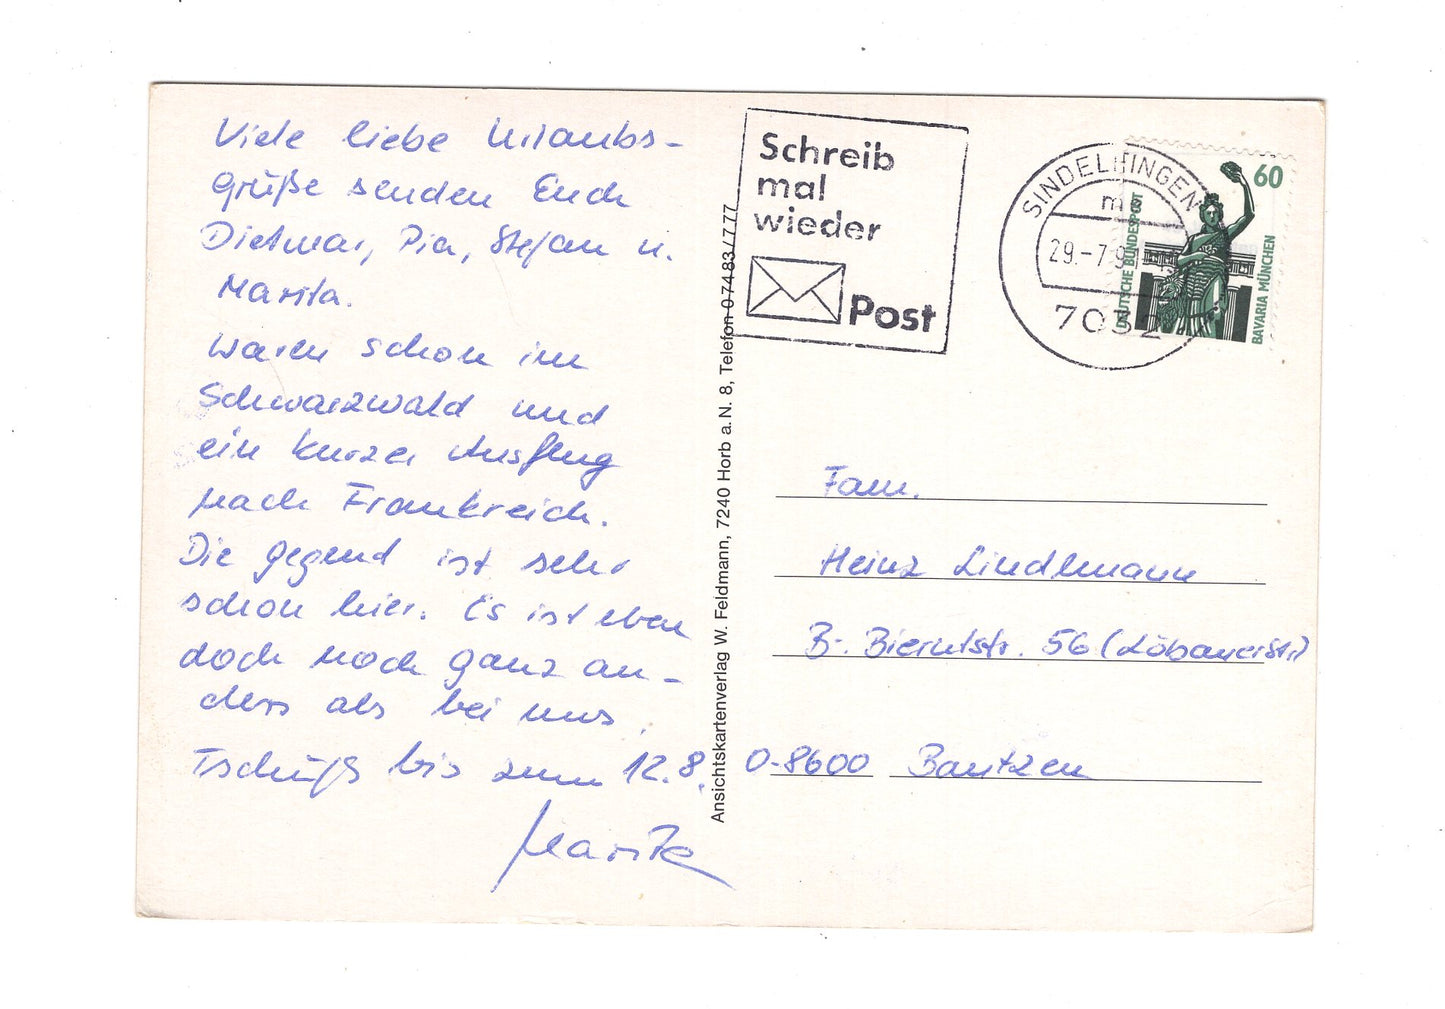 Viele liebe Urlaubs-
grüße senden Euch
Dietmar, Pia, Stefan u.
Marita.
Waren schon im
Schwarzwald und
ein kurzer Ausflug
nach Frankreich.
Die Gegend ist sehr
schön hier. Es ist eben
doch noch ganz an-
ders als bei uns.
Tschüß bis zum 12.8.
Marita
Ansichtskartenverlag W. Feldmann, 7240 Horb a. N. 8, Telefon 07483/777
Schreib
mal
wieder
Post
SINDELFINGEN
29.-7.91
7032
60
DEUTSCHE BUNDESPOST
BAVARIA MÜNCHEN
Fam.
Heinz Lindemann
B.- 56 (Löbauerstr.)
O-8600 Bautzen